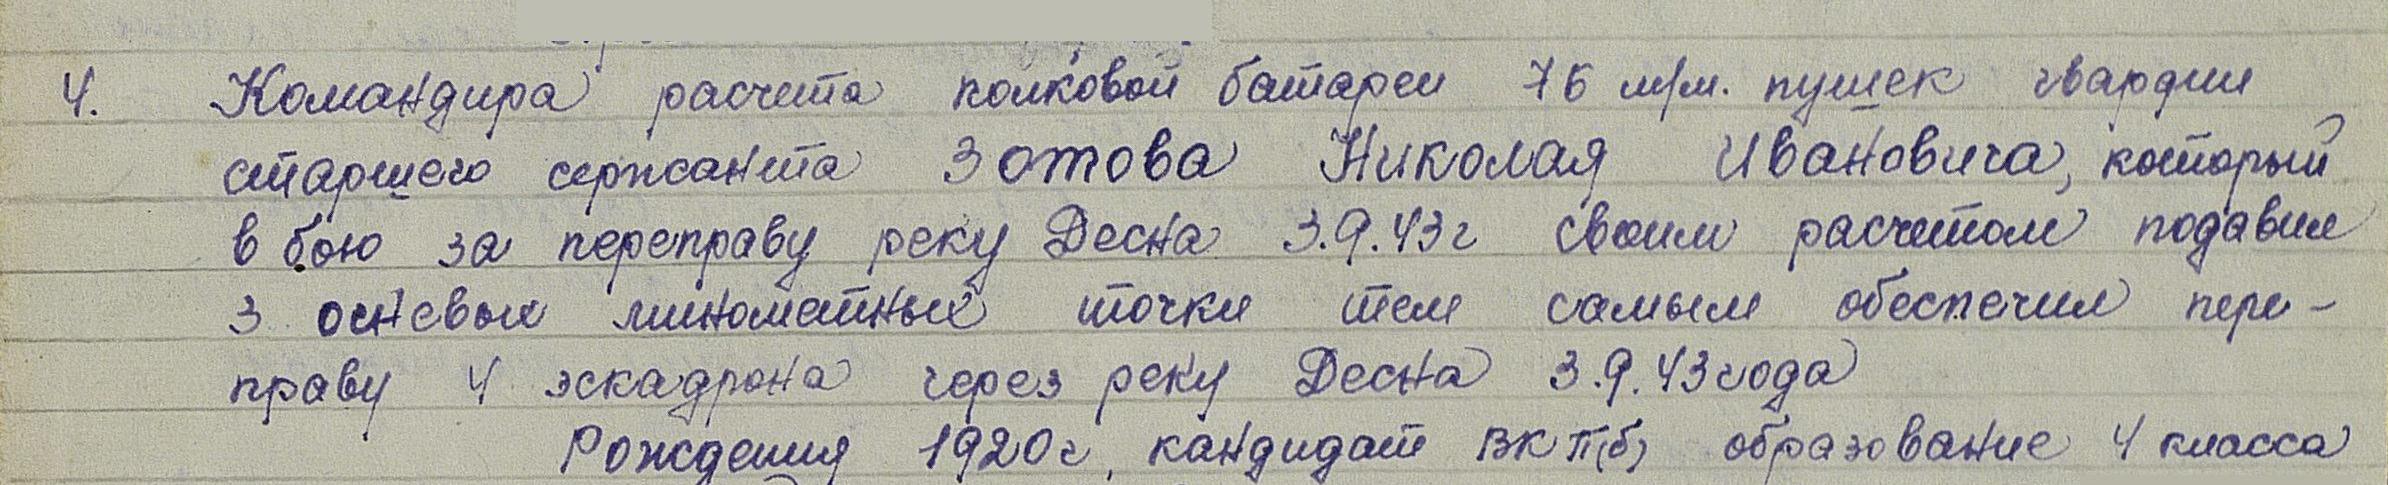 4. Командира расчета полковой батареи 76 м/м. пушек гвардии
старшего сержанта Зотова Николая Ивановича, который
в бою за переправу реку Десна 3.9.43г своим расчетом подавил
3 огневых минометных точки тем самым обеспечил пере-
праву 4 эскадрона через реку Десна 3.9.43 года
Рождения 1920г, кандидат ВКП(б) образование 4 класса